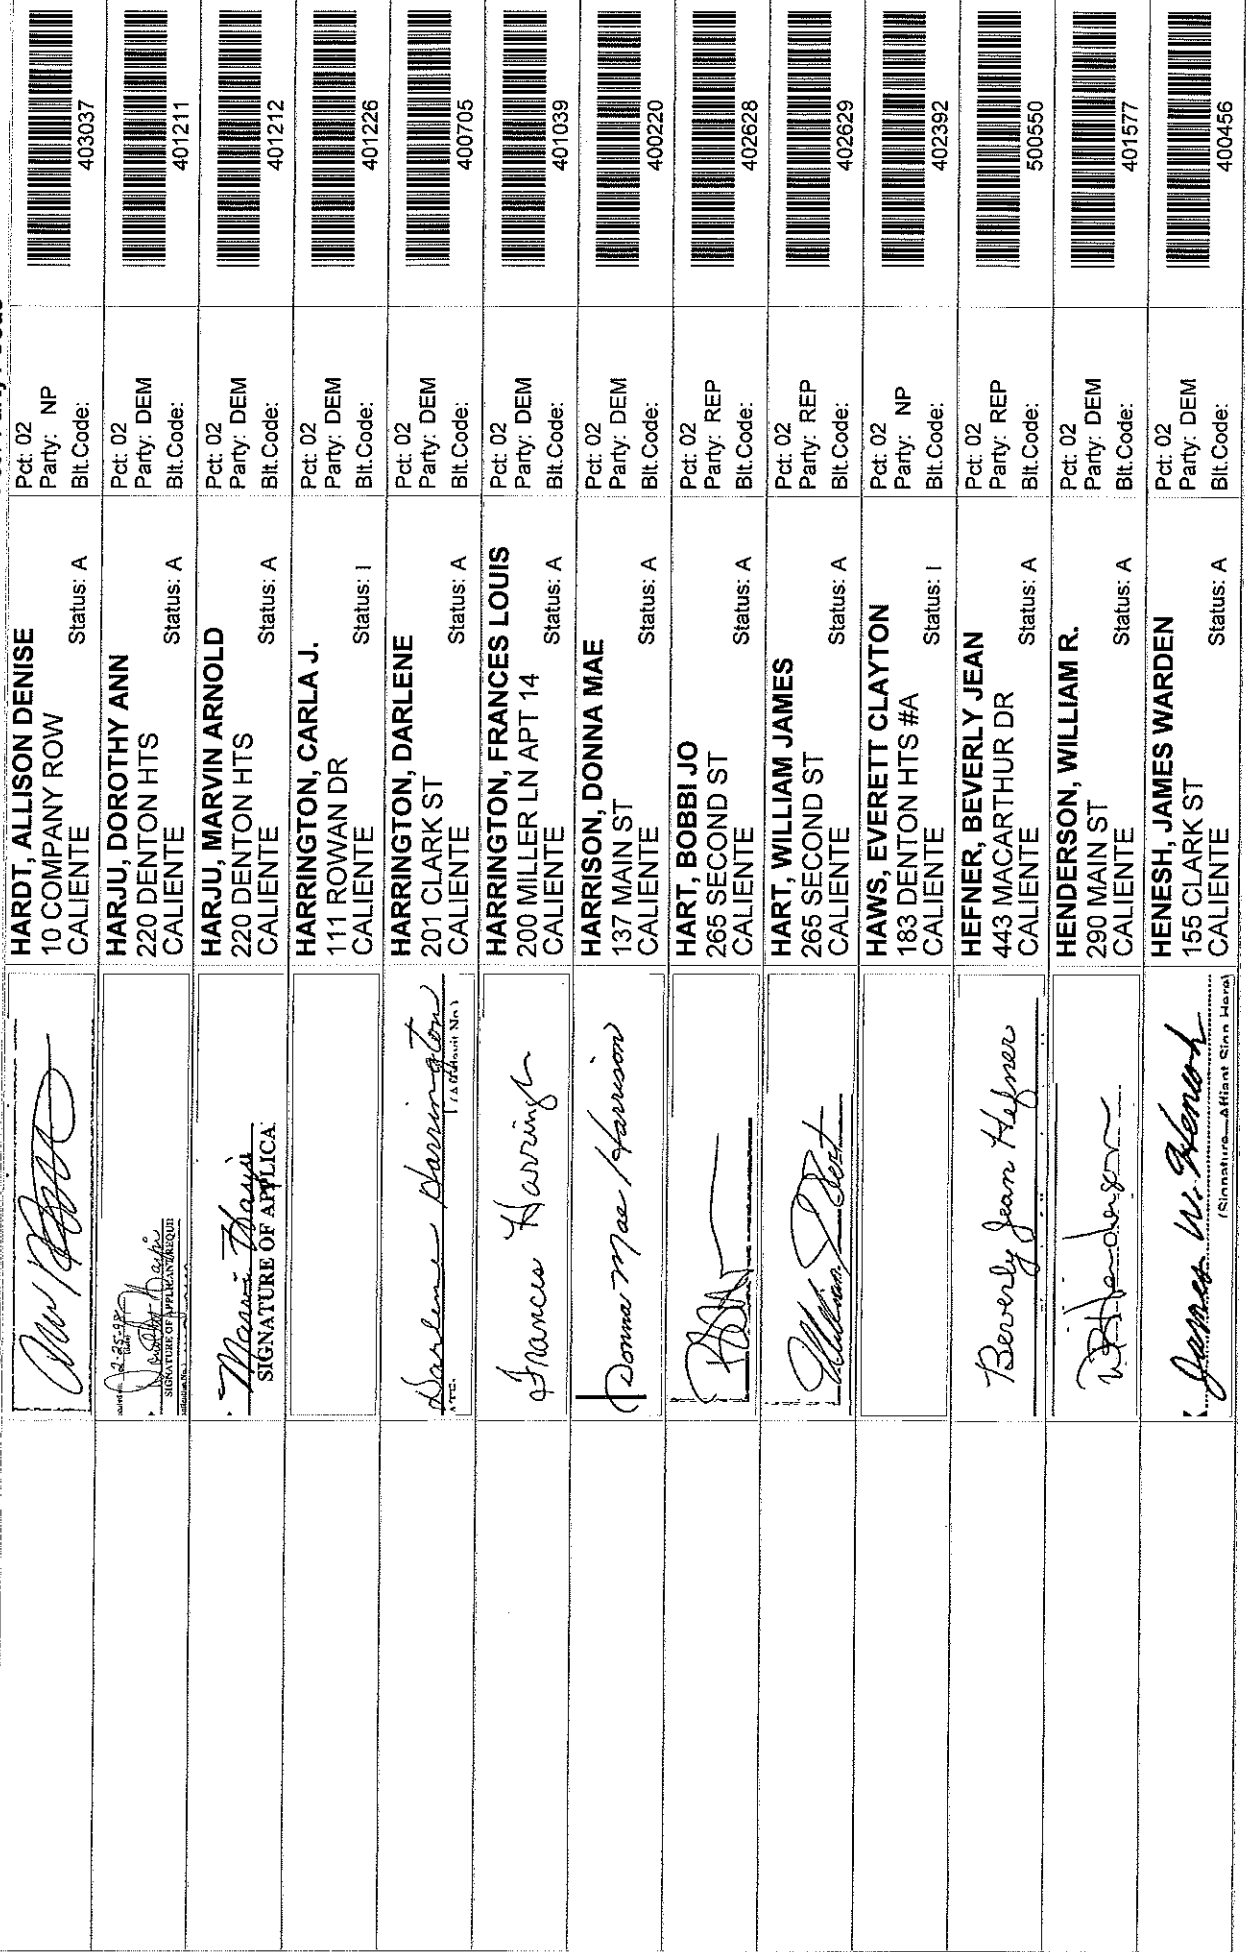 HARDT, ALLISON DENISE
10 COMPANY ROW
CALIENTE
Status: A
Pct: 02
Party: NP
Blt.Code:
403037
2-25-98
SIGNATURE OF APPLICANT/REQUIR
HARJU, DOROTHY ANN
220 DENTON HTS
CALIENTE
Status: A
Pct: 02
Party: DEM
Blt.Code:
401211
SIGNATURE OF APPLICA
HARJU, MARVIN ARNOLD
220 DENTON HTS
CALIENTE
Status: A
Pct: 02
Party: DEM
Blt.Code:
401212
HARRINGTON, CARLA J.
111 ROWAN DR
CALIENTE
Status: I
Pct: 02
Party: DEM
Blt.Code:
401226
Darlene Harrington
(Affidavit No.)
HARRINGTON, DARLENE
201 CLARK ST
CALIENTE
Status: A
Pct: 02
Party: DEM
Blt.Code:
400705
Frances Harringt
HARRINGTON, FRANCES LOUIS
200 MILLER LN APT 14
CALIENTE
Status: A
Pct: 02
Party: DEM
Blt.Code:
401039
Donna Mae Harrison
HARRISON, DONNA MAE
137 MAIN ST
CALIENTE
Status: A
Pct: 02
Party: DEM
Blt.Code:
400220
HART, BOBBI JO
265 SECOND ST
CALIENTE
Status: A
Pct: 02
Party: REP
Blt.Code:
402628
William J Hart
HART, WILLIAM JAMES
265 SECOND ST
CALIENTE
Status: A
Pct: 02
Party: REP
Blt.Code:
402629
HAWS, EVERETT CLAYTON
183 DENTON HTS #A
CALIENTE
Status: I
Pct: 02
Party: NP
Blt.Code:
402392
Beverly Jean Hefner
HEFNER, BEVERLY JEAN
443 MACARTHUR DR
CALIENTE
Status: A
Pct: 02
Party: REP
Blt.Code:
500550
WR Henderson
HENDERSON, WILLIAM R.
290 MAIN ST
CALIENTE
Status: A
Pct: 02
Party: DEM
Blt.Code:
401577
James W. Henesh
(Signature—Affiant Sign Here)
HENESH, JAMES WARDEN
155 CLARK ST
CALIENTE
Status: A
Pct: 02
Party: DEM
Blt.Code:
400456